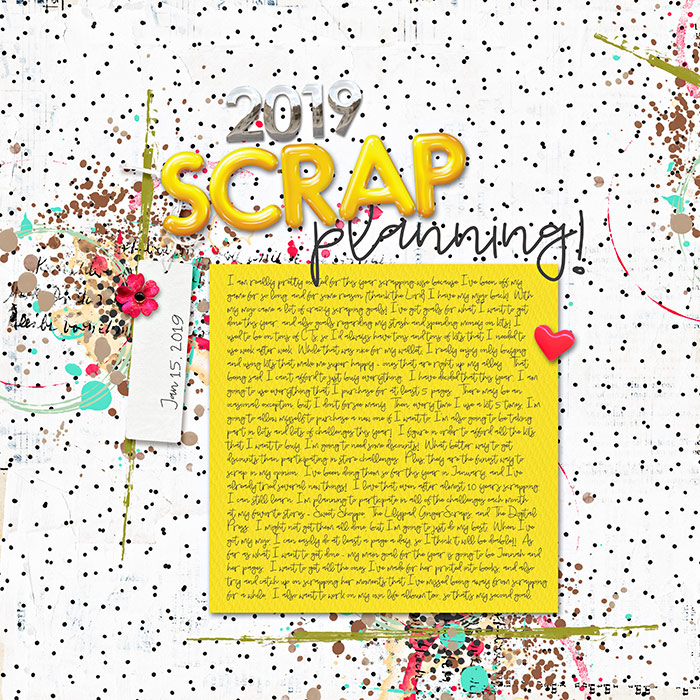 2019
SCRAP
planning!
Jan 15, 2019
I am really pretty excited for this year scrapping wise because I've been off my
game for so long, and for some reason (thank the Lord) I have my mojo back! With
my mojo came a lot of crazy scrapping goals! I've got goals for what I want to get
done this year, and also goals regarding my stash and spending money on kits! I
used to be on tons of CTs, so I'd always have tons and tons of kits that I needed to
use week after week. While that was nice for my wallet, I really enjoy only buying
and using kits that make me super happy - ones that are right up my alley. That
being said, I can't afford to just buy everything. I have decided that this year, I am
going to use everything that I purchase for at least 5 pages. There may be an
exception, but I don't foresee many. Then, every time I use a kit 5 times, I'm
going to allow myself to purchase a new one if I want to. I'm also going to be taking
part in lots and lots of challenges this year! I figure in order to afford all the kits
that I want to buy, I'm going to need some discounts! What better way to get
discounts than participating in store challenges. Plus, they are the funnest way to
scrap in my opinion. I've been doing them so far this year in January, and I've
already tried several new things! I love that even after almost 10 years scrapping
I can still learn. I'm planning to participate in all of the challenges each month
at my favorite stores - Sweet Shoppe, The Lilypad, GingerScraps, and The Digital
Press. I might not get them all done, but I'm going to just do my best. When I've
got my mojo, I can easily do at least a page a day, so I think it will be doable!! As
far as what I want to get done - my main goal for the year is going to be Jannah and
her pages. I want to get all the ones I've made for her printed into books, and also
try and catch up on scrapping her moments that I've missed being away from scrapping
for a while. I also want to work on my own life album too, so that's my second goal.